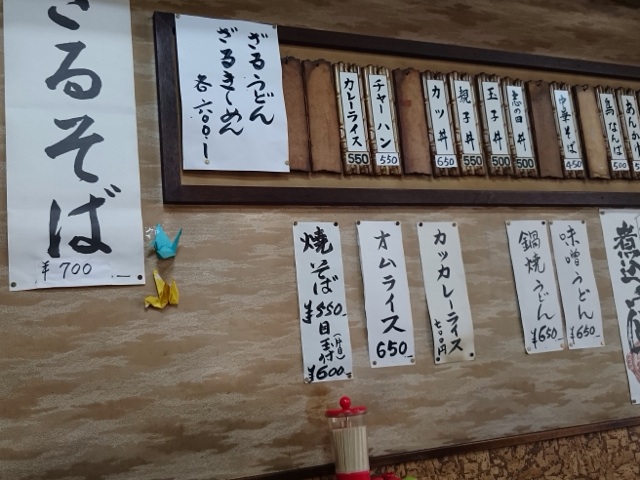 ざるそば
¥700
ざるうどん
ざるきしめん
各六〇〇
カレーライス
550
チャーハン
550
カツ丼
650
親子丼
550
玉子丼
500
志の田丼
500
中華そば
450
鳥なんば
焼そば
¥550
目玉付
¥600
オムライス
650
カツカレーライス
七〇〇円
鍋焼うどん
¥650
味噌うどん
¥650
煮込